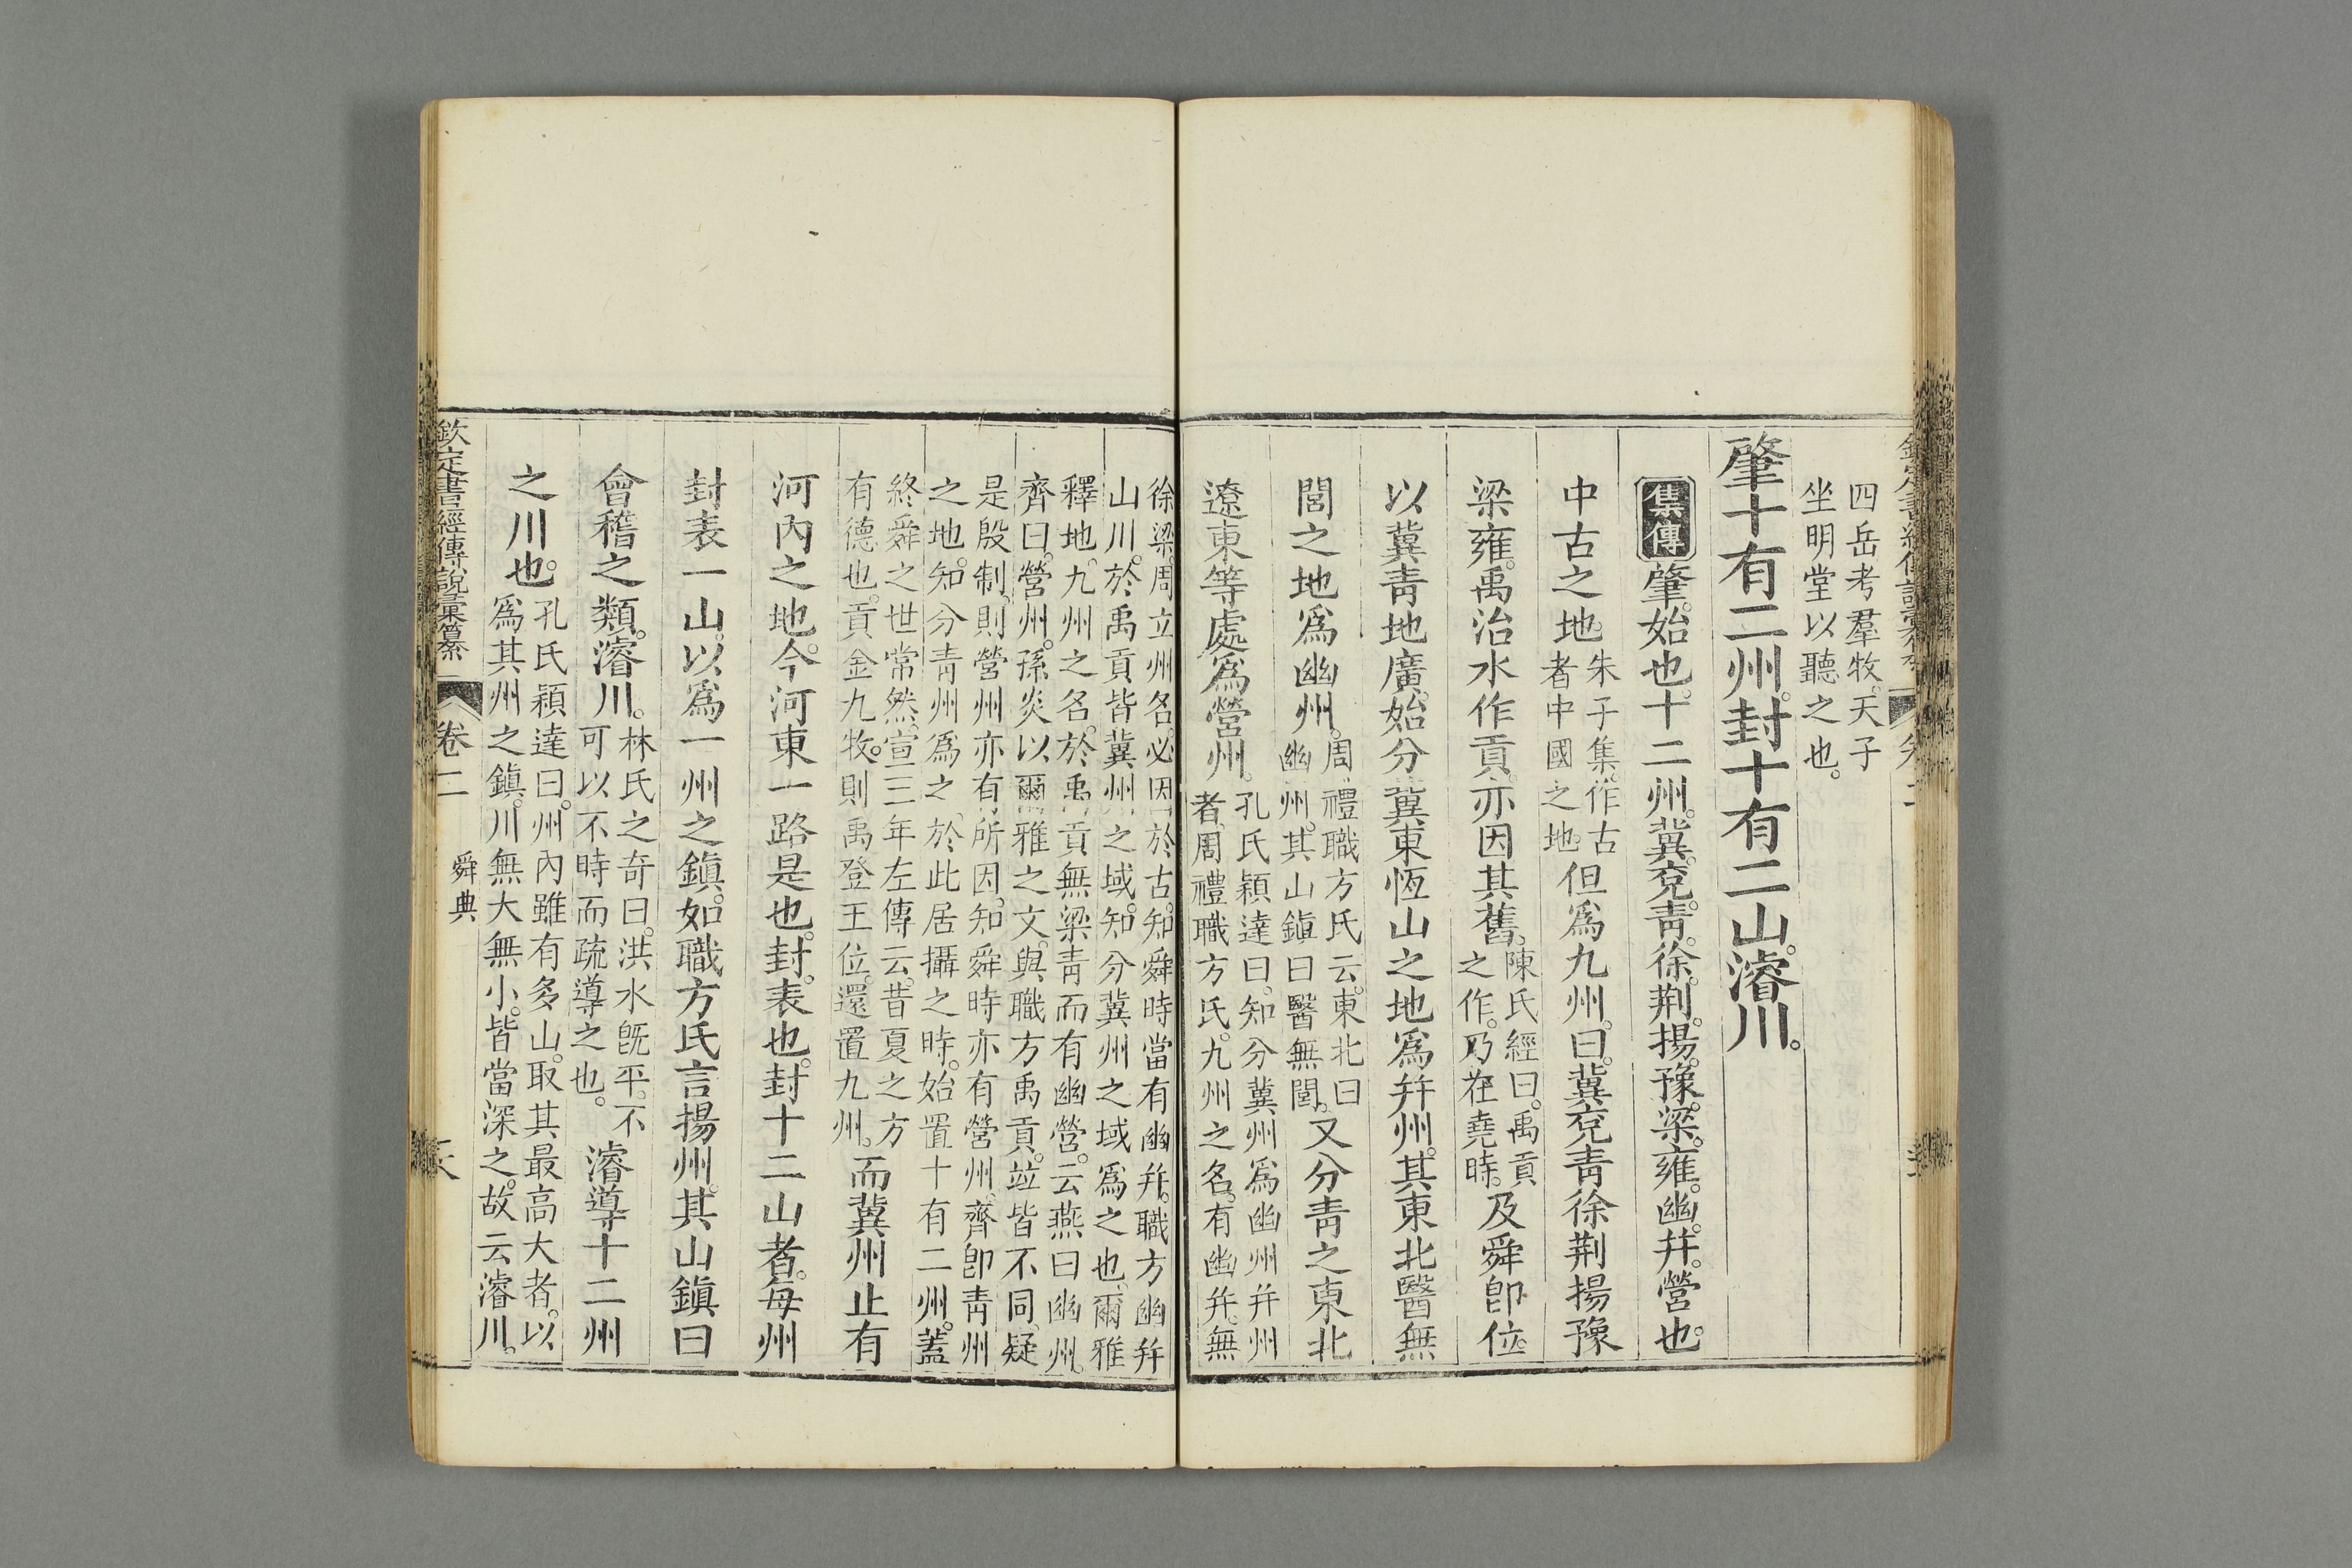 四岳考羣牧天子
坐明堂以聽之也
肇十有二州封十有二山濬川
集傳肇始也十二州冀兗靑徐荆揚豫梁雍幽幷營也
中古之地
朱子集作古
者中國之地
但爲九州曰冀兗靑徐荆揚豫
梁雍禹治水作貢亦因其舊
陳氏經曰禹貢
之作乃在堯時
及舜卽位
以冀靑地廣始分冀東恆山之地爲幷州其東北醫無
閭之地爲幽州
周禮職方氏云東北曰
幽州其山鎭曰醫無閭
又分靑之東北
遼東等處爲營州
孔氏穎達曰知分冀州爲幽州幷州
者周禮職方氏九州之名有幽幷無
徐梁周立州名必因於古知舜時當有幽幷職方幽幷
山川於禹貢皆冀州之域知分冀州之域爲之也爾雅
釋地九州之名於禹貢無梁靑而有幽營云燕曰幽州
齊曰營州孫炎以爾雅之文與職方禹貢竝皆不同疑
是殷制則營州亦有所因知舜時亦有營州齊卽靑州
之地知分靑州爲之於此居攝之時始置十有二州蓋
終舜之世常然宣三年左傳云昔夏之方
有德也貢金九牧則禹登王位還置九州
而冀州止有
河內之地今河東一路是也封表也封十二山者每州
封表一山以爲一州之鎭如職方氏言揚州其山鎭曰
會稽之類濬川
林氏之奇曰洪水旣平不
可以不時而疏導之也
濬導十二州
之川也
孔氏穎達曰州內雖有多山取其最高大者以
爲其州之鎭川無大無小皆當深之故云濬川
欽定書經傳說彙纂 卷二 舜典